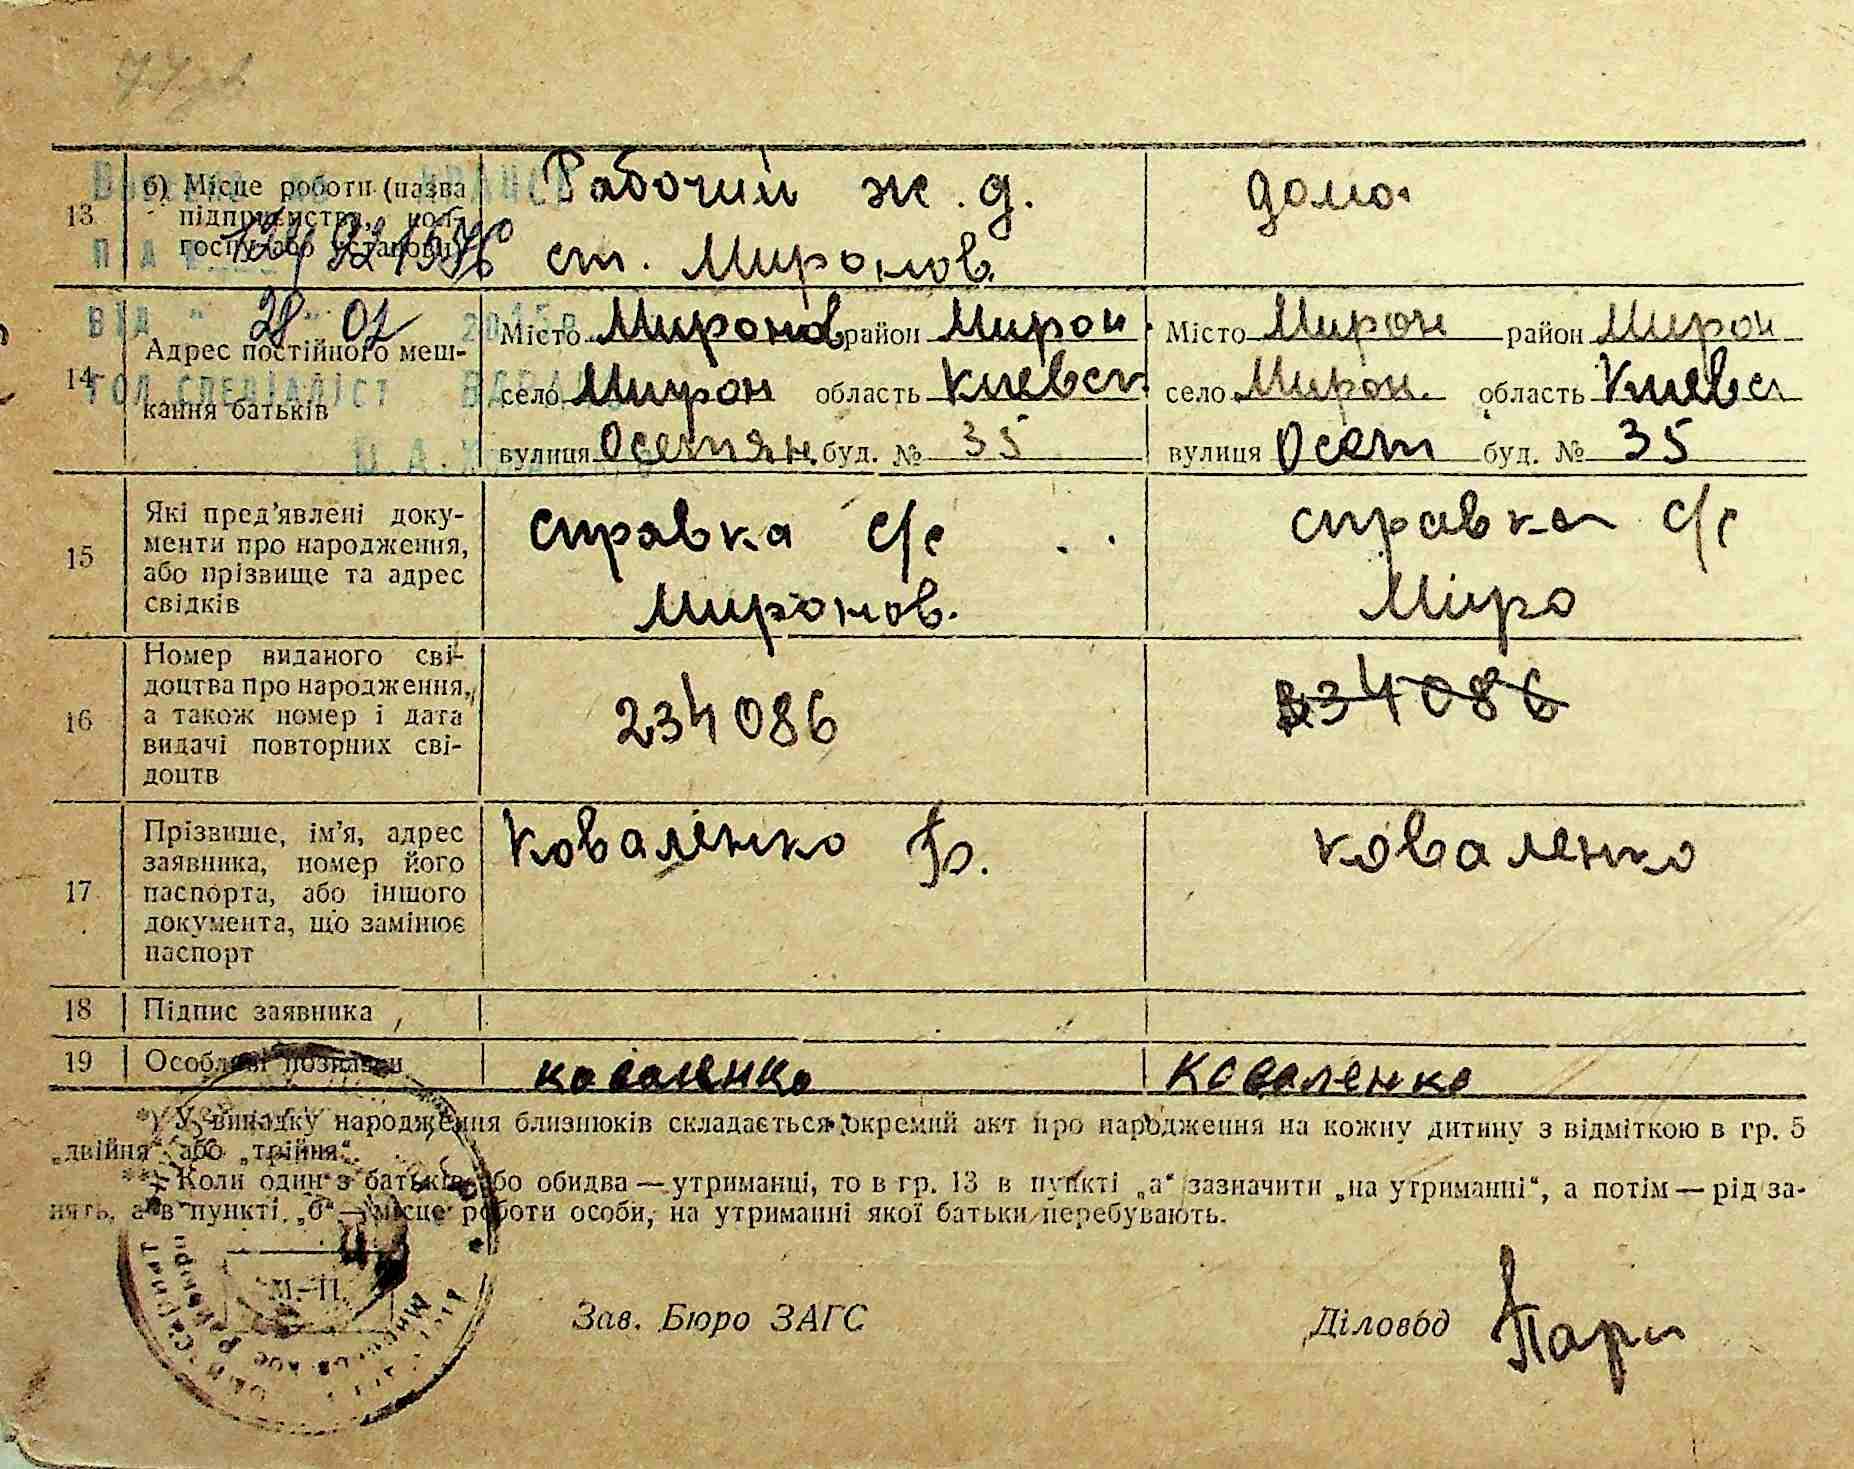 13 б) Місце роботи (назва підприємства, колгоспу або установи) Рабочий ж. д. дома
ст. Миронов.
від " 28 " 01
14 Адрес постійного мешкання батьків
Місто Миронов район Мирон. Місто Мирон район Мирон
село Мирон область Киевск. село Мирон. область Киевск
вулиця Осетян. буд. № 35 вулиця Осет буд. № 35
гол. спеціаліст
15 Які пред'явлені документи про народження, або прізвище та адрес свідків
справка с/с справка с/с
Миронов. Миро
16 Номер виданого свідоцтва про народження, а також номер і дата видачі повторних свідоцтв
234086 234086
17 Прізвище, ім'я, адрес заявника, номер його паспорта, або іншого документа, що замінює паспорт
Коваленко Коваленко
18 Підпис заявника
19 Особливі познаки коваленко Коваленко
*) У випадку народження близнюків складається окремий акт про народження на кожну дитину з відміткою в гр. 5
„двійня“ або „трійня“.
**) Коли один з батьків або обидва — утриманці, то в гр. 13 в пункті „а“ зазначити „на утриманні“, а потім — рід за-
нять, а в пункті „б“ — місце роботи особи, на утриманні якої батьки перебувають.
М. П.
Зав. Бюро ЗАГС Діловод